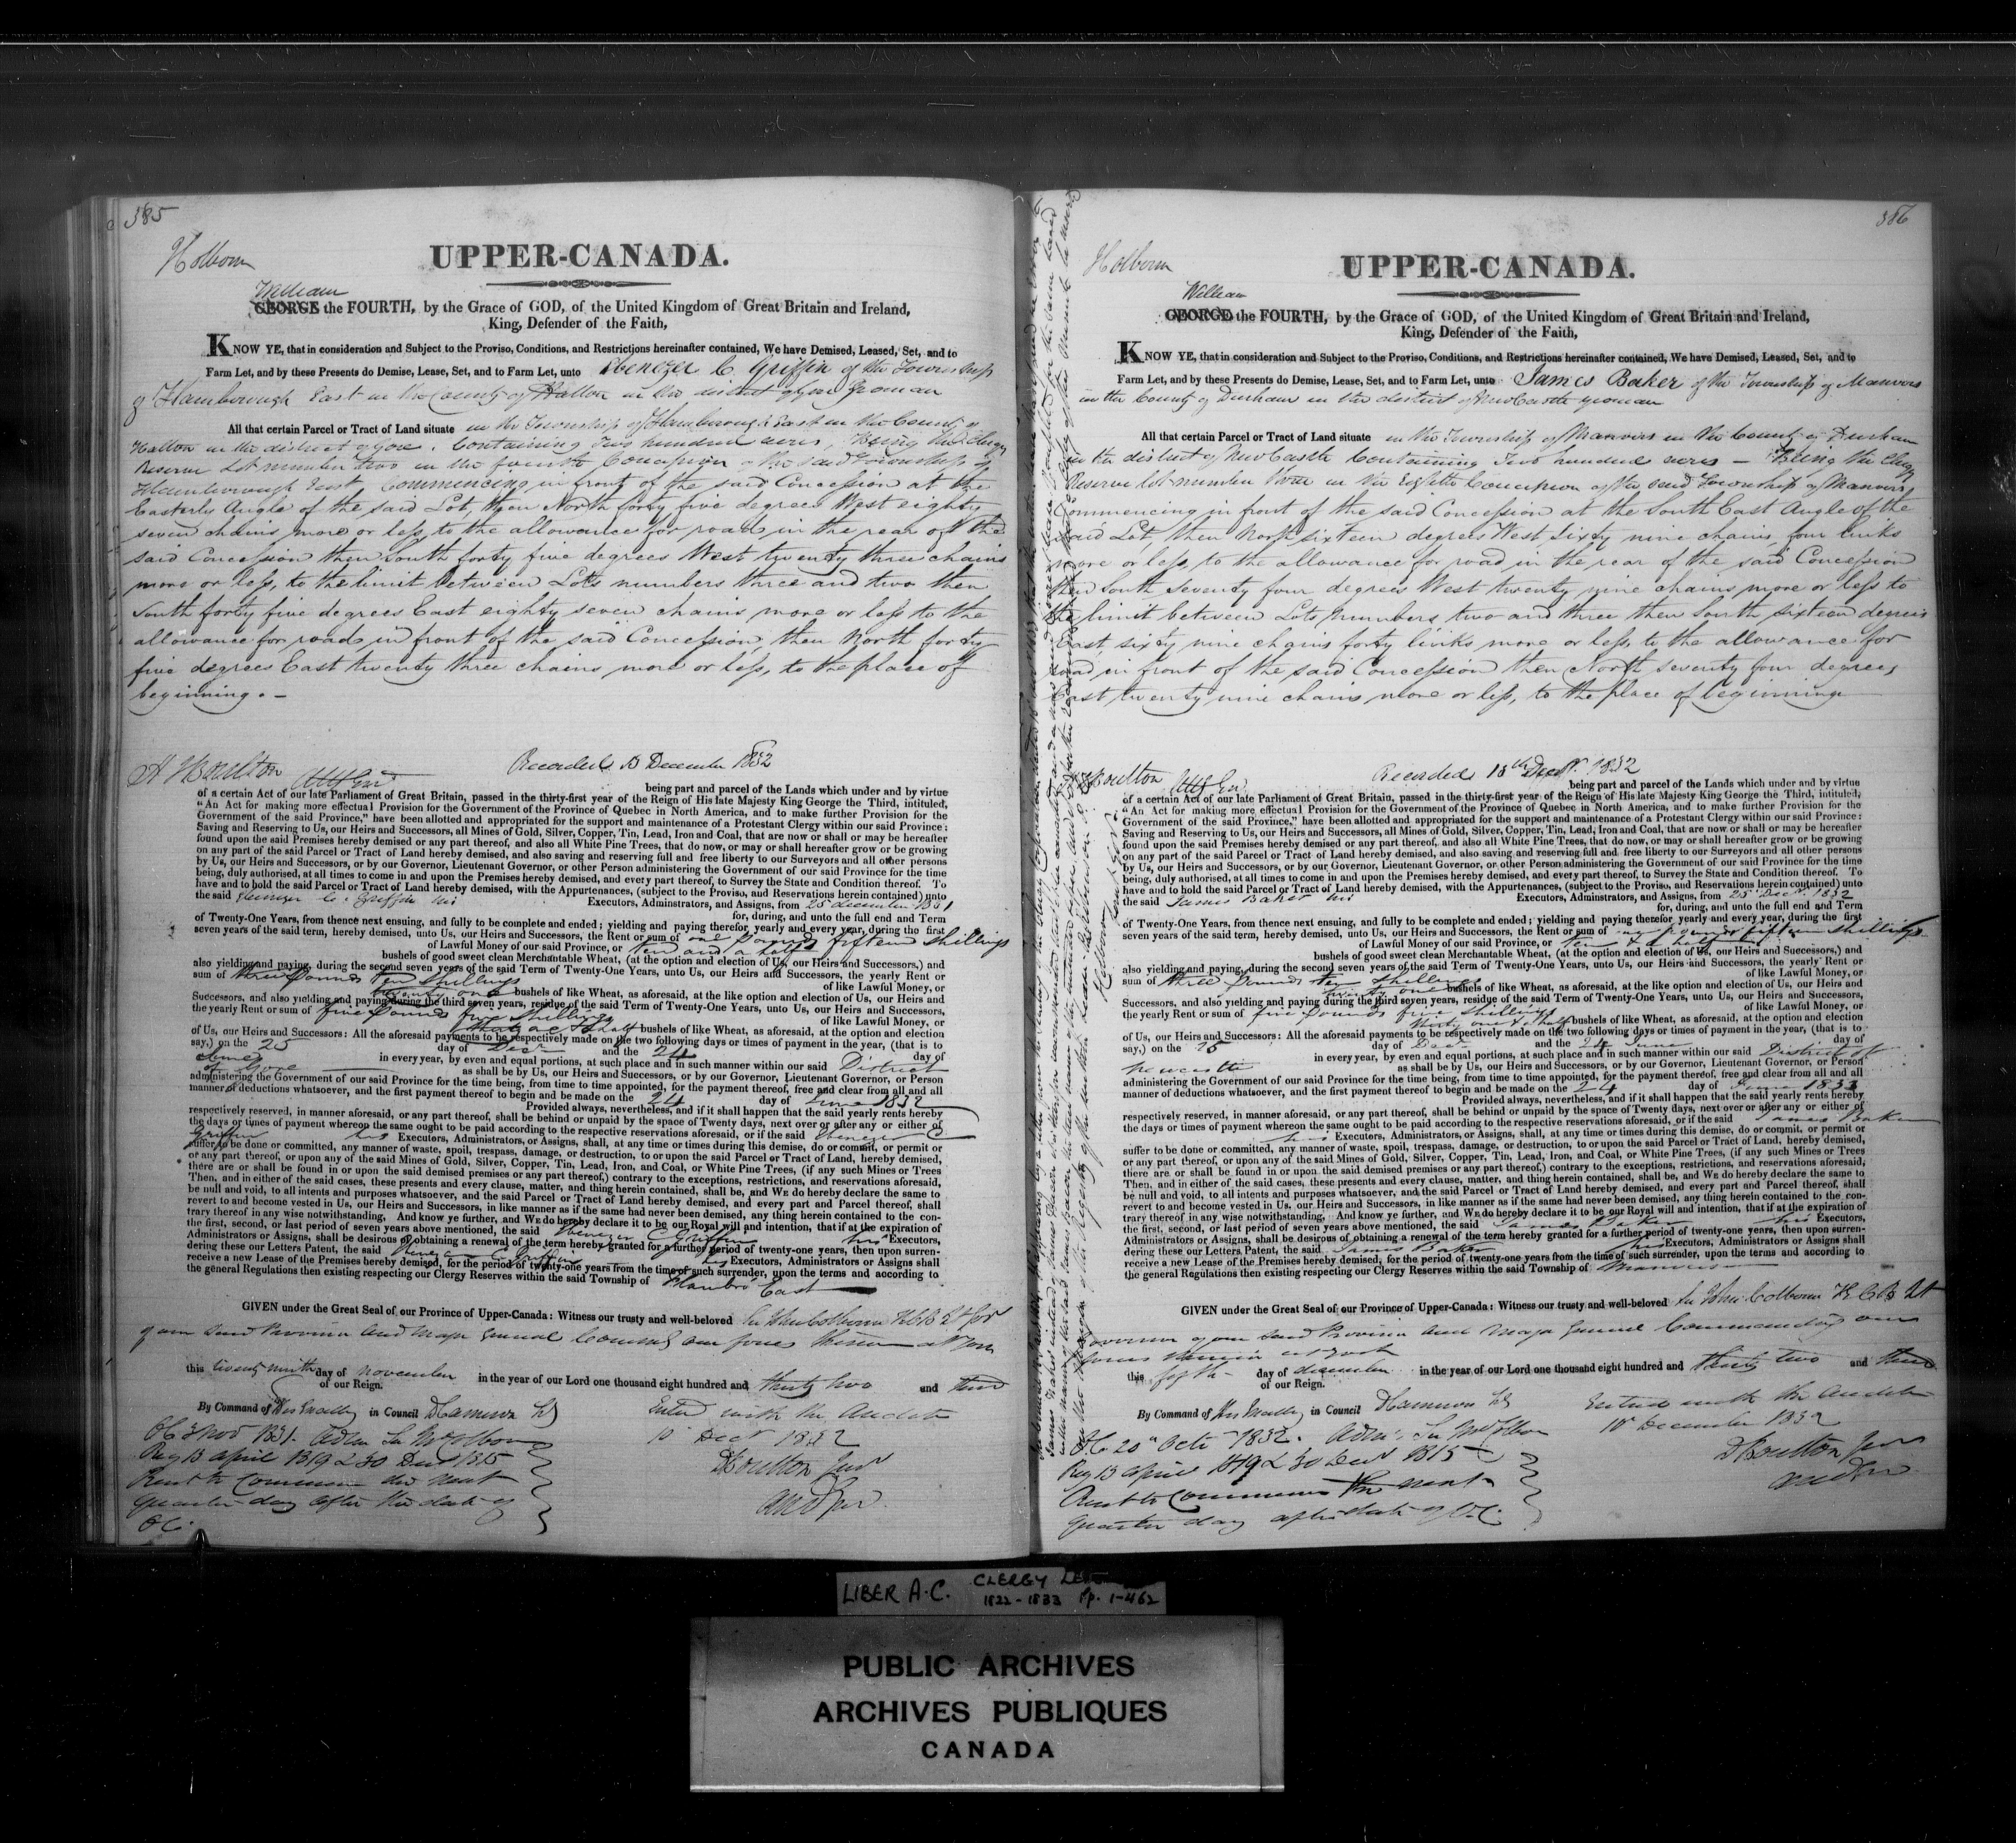 385
Holborn
UPPER-CANADA.
William
GEORGE the FOURTH, by the Grace of GOD, of the United Kingdom of Great Britain and Ireland,
King, Defender of the Faith,
KNOW YE, that in consideration and Subject to the Proviso, Conditions, and Restrictions hereinafter contained, We have Demised, Leased, Set, and to
Farm Let, and by these Presents do Demise, Lease, Set, and to Farm Let, unto Ebenezer C. Griffin of the Township
of Flamborough East in the County of Halton in the district of Gore Yeoman
All that certain Parcel or Tract of Land situate in the Township of Flamborough East in the County of
Halton in the district of Gore. Containing Two hundred acres, Being the Clergy
Reserve Lot number two in the fourth Concession of the said Township of
Flamborough East Commencing in front of the said Concession at the
Easterly Angle of the said Lot, then North forty five degrees West eighty
seven chains more or less, to the allowance for road, in the rear of the
said Concession then South forty five degrees West twenty three chains
more or less, to the limit between Lots numbers three and two then
South forty five degrees East eighty seven chains more or less to the
allowance for roads, in front of the said Concession, then North forty
five degrees East twenty three chains more or less, to the place of
beginning. —
H Boulton Atty Gen
Recorded 13 December 1832
being part and parcel of the Lands which under and by virtue
of a certain Act of our late Parliament of Great Britain, passed in the thirty-first year of the Reign of His late Majesty King George the Third, intituled,
"An Act for making more effectual Provision for the Government of the Province of Quebec in North America, and to make further Provision for the
Government of the said Province," have been allotted and appropriated for the support and maintenance of a Protestant Clergy within our said Province:
Saving and Reserving to Us, our Heirs and Successors, all Mines of Gold, Silver, Copper, Tin, Lead, Iron and Coal, that are now or shall or may be hereafter
found upon the said Premises hereby demised or any part thereof, and also all White Pine Trees, that do now, or may or shall hereafter grow or be growing
on any part of the said Parcel or Tract of Land hereby demised, and also saving and reserving full and free liberty to our Surveyors and all other persons
by Us, our Heirs and Successors, or by our Governor, Lieutenant Governor, or other Person administering the Government of our said Province for the time
being, duly authorised, at all times to come in and upon the Premises hereby demised, and every part thereof, to Survey the State and Condition thereof. To
have and to hold the said Parcel or Tract of Land hereby demised, with the Appurtenances, (subject to the Proviso, and Reservations herein contained) unto
the said Ebenezer C. Griffin his Executors, Adminstrators, and Assigns, from 25 december 1831
for, during, and unto the full end and Term
of Twenty-One Years, from thence next ensuing, and fully to be complete and ended; yielding and paying therefor yearly and every year, during the first
seven years of the said term, hereby demised, unto Us, our Heirs and Successors, the Rent or sum of one pound fifteen shillings
of Lawful Money of our said Province, or ten and a half
bushels of good sweet clean Merchantable Wheat, (at the option and election of Us, our Heirs and Successors,) and
also yielding and paying, during the second seven years of the said Term of Twenty-One Years, unto Us, our Heirs and Successors, the yearly Rent or
sum of three pounds ten shillings of like Lawful Money, or
twenty one bushels of like Wheat, as aforesaid, at the like option and election of Us, our Heirs and
Successors, and also yielding and paying during the third seven years, residue of the said Term of Twenty-One Years, unto Us, our Heirs and Successors,
the yearly Rent or sum of five pounds five shillings of like Lawful Money, or
thirty one & a half bushels of like Wheat, as aforesaid, at the option and election
of Us, our Heirs and Successors: All the aforesaid payments to be respectively made on the two following days or times of payment in the year, (that is to
say,) on the 25 day of Decr and the 24 day of
June in every year, by even and equal portions, at such place and in such manner within our said District
of Gore as shall be by Us, our Heirs and Successors, or by our Governor, Lieutenant Governor, or Person
administering the Government of our said Province for the time being, from time to time appointed, for the payment thereof, free and clear from all and all
manner of deductions whatsoever, and the first payment thereof to begin and be made on the 24 day of June 1832
Provided always, nevertheless, and if it shall happen that the said yearly rents hereby
respectively reserved, in manner aforesaid, or any part thereof, shall be behind or unpaid by the space of Twenty days, next over or after any or either of
the days or times of payment whereon the same ought to be paid according to the respective reservations aforesaid, or if the said Ebenezer C
Griffin his Executors, Administrators, or Assigns, shall, at any time or times during this demise, do or commit, or permit or
suffer to be done or committed, any manner of waste, spoil, trespass, damage, or destruction, to or upon the said Parcel or Tract of Land, hereby demised,
or any part thereof, or upon any of the said Mines of Gold, Silver, Copper, Tin, Lead, Iron, and Coal, or White Pine Trees, (if any such Mines or Trees
there are or shall be found in or upon the said demised premises or any part thereof,) contrary to the exceptions, restrictions, and reservations aforesaid,
Then, and in either of the said cases, these presents and every clause, matter, and thing herein contained, shall be, and WE do hereby declare the same to
be null and void, to all intents and purposes whatsoever, and the said Parcel or Tract of Land hereby demised, and every part and Parcel thereof, shall
revert to and become vested in Us, our Heirs and Successors, in like manner as if the same had never been demised, any thing herein contained to the con-
trary thereof in any wise notwithstanding, And know ye further, and WE do hereby declare it to be our Royal will and intention, that if at the expiration of
the first, second, or last period of seven years above mentioned, the said Ebenezer C Griffin his Executors,
Administrators or Assigns, shall be desirous of obtaining a renewal of the term hereby granted for a further period of twenty-one years, then upon surren-
dering these our Letters Patent, the said Ebenezer C Griffin his Executors, Administrators or Assigns shall
receive a new Lease of the Premises hereby demised, for the period of twenty-one years from the time of such surrender, upon the terms and according to
the general Regulations then existing respecting our Clergy Reserves within the said Township of Flambro East
GIVEN under the Great Seal of our Province of Upper-Canada: Witness our trusty and well-beloved Sir John Colborne K.C.B. Lt Gov
of our said Province and Major General Commg our forces therein at York
this twenty ninth day of November in the year of our Lord one thousand eight hundred and thirty two and third
of our Reign.
By Command of His Excelly in Council DCameron
Entd with the Auditor
OC 3 Nov 1831. Admn Sir Jno Colborne
10 Decr 1832
Reg 13 april 1819 & 30 Decr 1815
DBoulton Junr
Rent to Commence the next
quarter day after the date of
Audr
OC.
386
Holborn
UPPER-CANADA.
William
GEORGE the FOURTH, by the Grace of GOD, of the United Kingdom of Great Britain and Ireland,
King, Defender of the Faith,
KNOW YE, that in consideration and Subject to the Proviso, Conditions, and Restrictions hereinafter contained, We have Demised, Leased, Set, and to
Farm Let, and by these Presents do Demise, Lease, Set, and to Farm Let, unto James Baker of the Township of Manvers
in the County of Durham in the district of NewCastle yeoman
All that certain Parcel or Tract of Land situate in the Township of Manvers in the County of Durham
in the district of NewCastle Containing Two hundred acres — Being the Clergy
Reserve lot number three in the eighth Concession of the said Township of Manvers
Commencing in front of the said Concession at the South East Angle of the
said Lot, then North sixteen degrees West Sixty nine chains four links
more or less, to the allowance for road in the rear of the said Concession
then South Seventy four degrees West twenty nine chains more or less to
the limit between Lots numbers two and three then South sixteen degrees
East sixty nine chains forty links more or less, to the allowance for
road in front of the said Concession then North seventy four degrees,
East twenty nine chains more or less, to the place of beginning
H Boulton Atty Gen
Recorded 18th Decr. 1832
being part and parcel of the Lands which under and by virtue
of a certain Act of our late Parliament of Great Britain, passed in the thirty-first year of the Reign of His late Majesty King George the Third, intituled,
"An Act for making more effectual Provision for the Government of the Province of Quebec in North America, and to make further Provision for the
Government of the said Province," have been allotted and appropriated for the support and maintenance of a Protestant Clergy within our said Province:
Saving and Reserving to Us, our Heirs and Successors, all Mines of Gold, Silver, Copper, Tin, Lead, Iron and Coal, that are now or shall or may be hereafter
found upon the said Premises hereby demised or any part thereof, and also all White Pine Trees, that do now, or may or shall hereafter grow or be growing
on any part of the said Parcel or Tract of Land hereby demised, and also saving and reserving full and free liberty to our Surveyors and all other persons
by Us, our Heirs and Successors, or by our Governor, Lieutenant Governor, or other Person administering the Government of our said Province for the time
being, duly authorised, at all times to come in and upon the Premises hereby demised, and every part thereof, to Survey the State and Condition thereof. To
have and to hold the said Parcel or Tract of Land hereby demised, with the Appurtenances, (subject to the Proviso, and Reservations herein contained) unto
the said James Baker his Executors, Adminstrators, and Assigns, from 25 Decr 1832
for, during, and unto the full end and Term
of Twenty-One Years, from thence next ensuing, and fully to be complete and ended; yielding and paying therefor yearly and every year, during the first
seven years of the said term, hereby demised, unto Us, our Heirs and Successors, the Rent or sum of one pound fifteen shillings
of Lawful Money of our said Province, or ten & a half
bushels of good sweet clean Merchantable Wheat, (at the option and election of Us, our Heirs and Successors,) and
also yielding and paying, during the second seven years of the said Term of Twenty-One Years, unto Us, our Heirs and Successors, the yearly Rent or
sum of three pounds ten shillings of like Lawful Money, or
twenty one bushels of like Wheat, as aforesaid, at the like option and election of Us, our Heirs and
Successors, and also yielding and paying during the third seven years, residue of the said Term of Twenty-One Years, unto Us, our Heirs and Successors,
the yearly Rent or sum of five pounds five shillings of like Lawful Money, or
thirty one & a half bushels of like Wheat, as aforesaid, at the option and election
of Us, our Heirs and Successors: All the aforesaid payments to be respectively made on the two following days or times of payment in the year, (that is to
say,) on the 25 day of Decr and the 24 June day of
in every year, by even and equal portions, at such place and in such manner within our said District of
Newcastle as shall be by Us, our Heirs and Successors, or by our Governor, Lieutenant Governor, or Person
administering the Government of our said Province for the time being, from time to time appointed, for the payment thereof, free and clear from all and all
manner of deductions whatsoever, and the first payment thereof to begin and be made on the 24 day of June 1833
Provided always, nevertheless, and if it shall happen that the said yearly rents hereby
respectively reserved, in manner aforesaid, or any part thereof, shall be behind or unpaid by the space of Twenty days, next over or after any or either of
the days or times of payment whereon the same ought to be paid according to the respective reservations aforesaid, or if the said James Baker
his Executors, Administrators, or Assigns, shall, at any time or times during this demise, do or commit, or permit or
suffer to be done or committed, any manner of waste, spoil, trespass, damage, or destruction, to or upon the said Parcel or Tract of Land, hereby demised,
or any part thereof, or upon any of the said Mines of Gold, Silver, Copper, Tin, Lead, Iron, and Coal, or White Pine Trees, (if any such Mines or Trees
there are or shall be found in or upon the said demised premises or any part thereof,) contrary to the exceptions, restrictions, and reservations aforesaid,
Then, and in either of the said cases, these presents and every clause, matter, and thing herein contained, shall be, and WE do hereby declare the same to
be null and void, to all intents and purposes whatsoever, and the said Parcel or Tract of Land hereby demised, and every part and Parcel thereof, shall
revert to and become vested in Us, our Heirs and Successors, in like manner as if the same had never been demised, any thing herein contained to the con-
trary thereof in any wise notwithstanding, And know ye further, and WE do hereby declare it to be our Royal will and intention, that if at the expiration of
the first, second, or last period of seven years above mentioned, the said James Baker his Executors,
Administrators or Assigns, shall be desirous of obtaining a renewal of the term hereby granted for a further period of twenty-one years, then upon surren-
dering these our Letters Patent, the said James Baker his Executors, Administrators or Assigns shall
receive a new Lease of the Premises hereby demised, for the period of twenty-one years from the time of such surrender, upon the terms and according to
the general Regulations then existing respecting our Clergy Reserves within the said Township of Manvers
GIVEN under the Great Seal of our Province of Upper-Canada: Witness our trusty and well-beloved Sir John Colborne K.C.B. Lt
Governor of our said Province and Major General Commanding our
forces therein at York
this fifth day of december in the year of our Lord one thousand eight hundred and thirty two and third
of our Reign.
By Command of His Excelly in Council DCameron
Entered with the Auditor
OC 20 Octr 1832. Admn Sir Jno Colborne
10 December 1832
Reg 13 april 1819 & 30 Decr 1815
DBoulton Junr
Rent to Commence the next
Audr
quarter day after date of O.C.
LIBER A.C. CLERGY
1822-1833 Pp. 1-462
PUBLIC ARCHIVES
ARCHIVES PUBLIQUES
CANADA